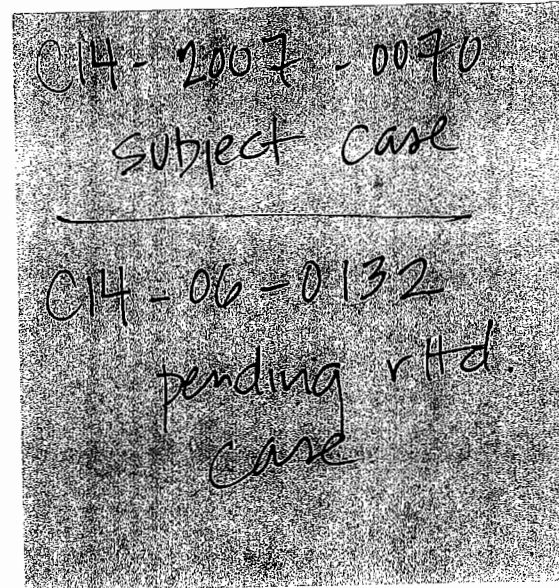 C14-2007-0070
subject case
C14-06-0132
pending rltd.
case